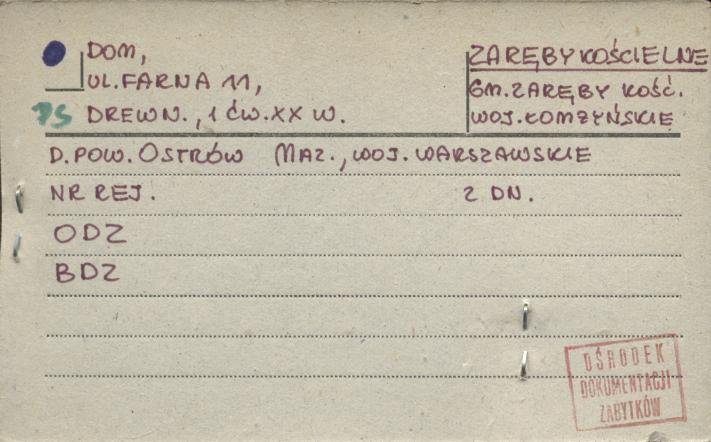 DOM,
UL. FARNA 11,
PS DREWN., 1 ĆW. XX W.
ZARĘBY KOŚCIELNE
GM. ZARĘBY KOŚC.
WOJ. ŁOMŻYŃSKIE
D. POW. OSTRÓW MAZ., WOJ. WARSZAWSKIE
NR REJ. Z DN.
ODZ
BDZ
OŚRODEK
DOKUMENTACJI
ZABYTKÓW